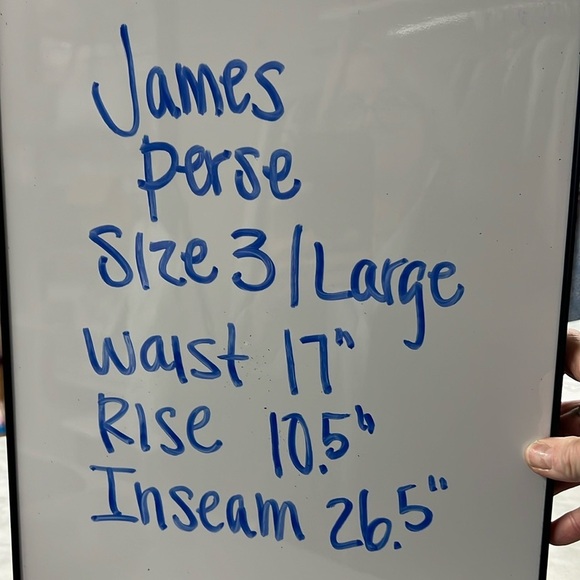 James
Perse
Size 3/Large
Waist 17"
Rise 10.5"
Inseam 26.5"